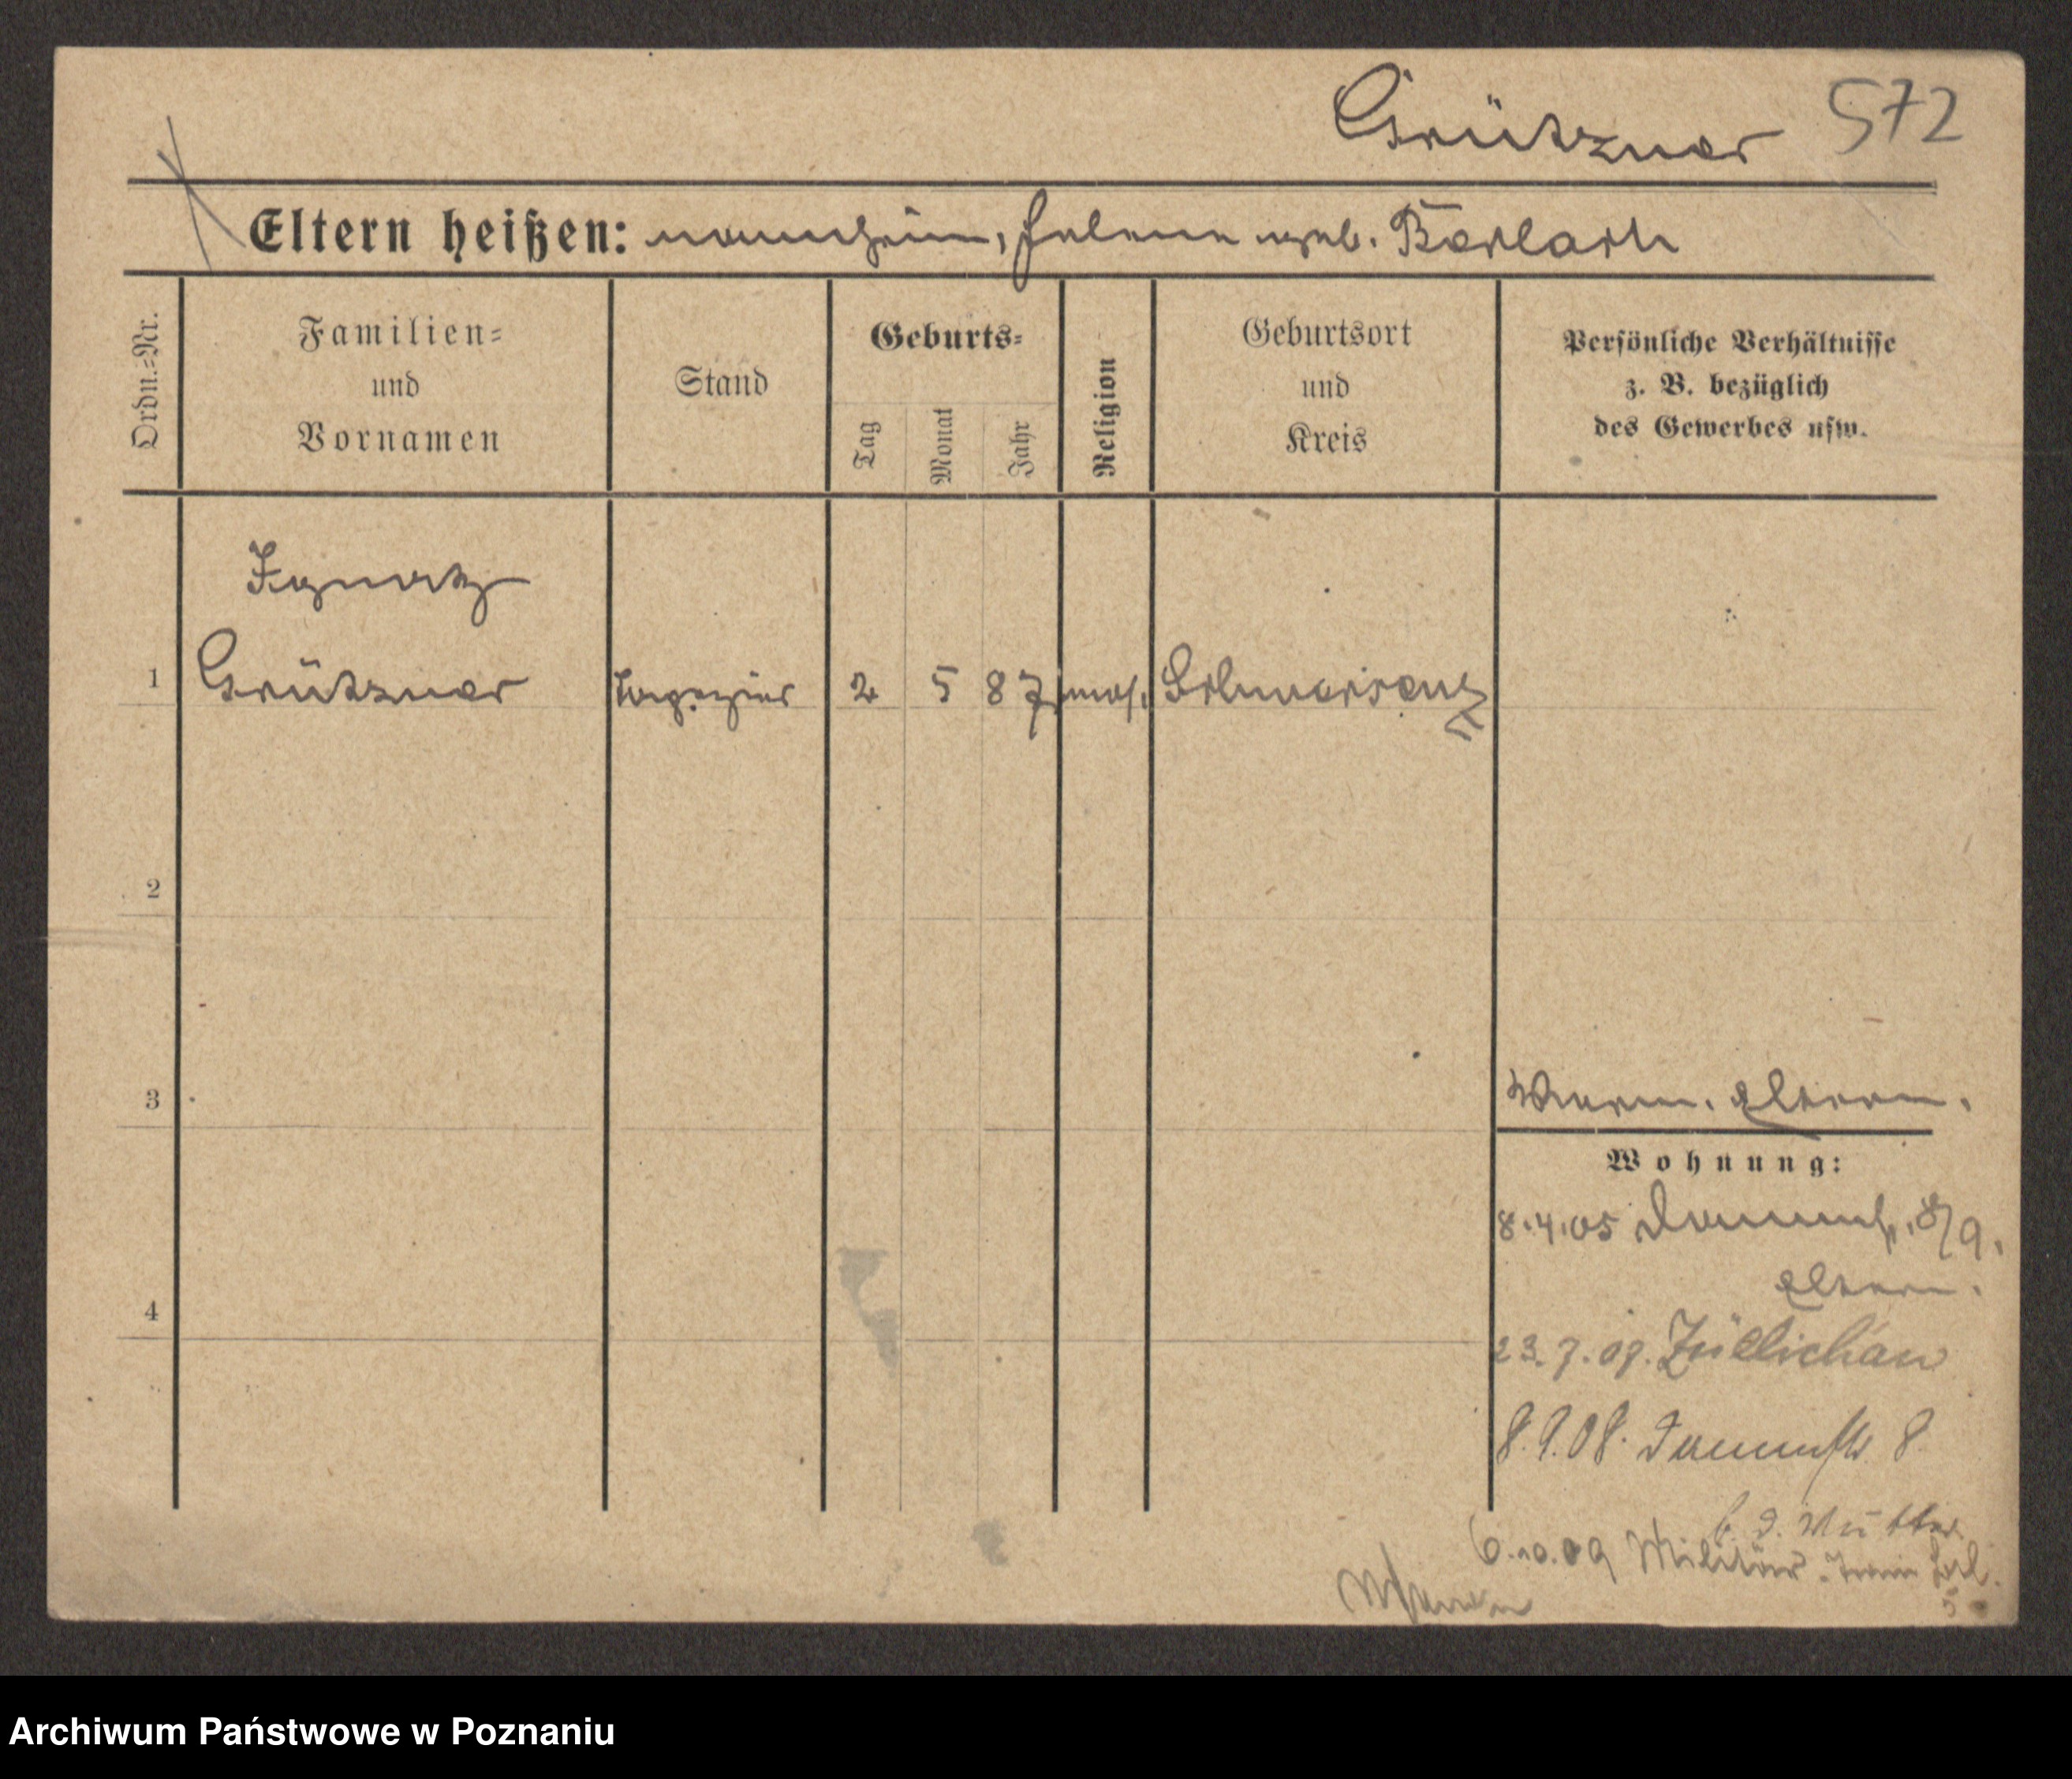 Grützner 572
Eltern heißen: Mannheim, Helene geb. Berlach
Ordn.=Nr.
Familien=
und
Vornamen
Stand
Geburts=
Tag
Monat
Jahr
Religion
Geburtsort
und
Kreis
Persönliche Verhältnisse
z. B. bezüglich
des Gewerbes usw.
Ignatz
1 Grützner Tapezier 2 5 87 mos. Schwersenz
2
3
Eltern.
Wohnung:
8.4.05 8/9.
Eltern.
4
23.7.07. Züllichau
8.9.08. 8
b. d. Mutter
6.10.09 Militär-Train Btl.
5
Archiwum Państwowe w Poznaniu